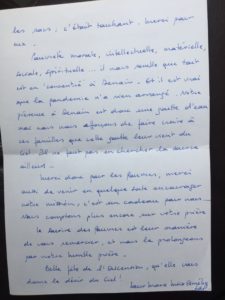 les voir, c'était touchant. Merci pour
eux.
Pauvreté morale, intellectuelle, matérielle,
sociale, spirituelle... il nous semble que tout
est en "concentré" à Denain. Et il est vrai
que la pandémie n'a rien arrangé. Notre
présence à Denain est donc une goutte d'eau
mais nous nous efforçons de faire croire à
ces familles que cette goutte leur vient du
Ciel. Il ne faut pas en chercher la source
ailleurs...
Merci donc pour les jeunes, merci
aussi de venir en quelque sorte encourager
notre mission, c'est un cadeau pour nous.
Nous comptons plus encore sur votre prière
Le sourire des jeunes est leur manière
de vous remercier, et nous la prolongeons
par notre humble prière.
Belle fête de l'Ascension, qu'elle vous
donne le désir du Ciel!
Sœur Marie